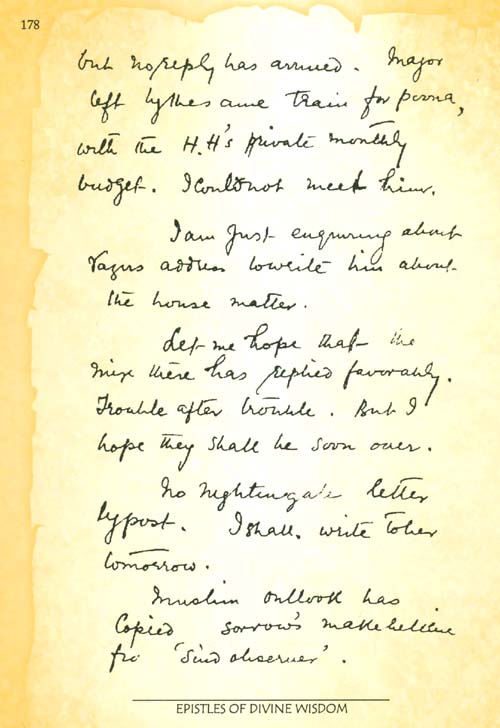 178
but no reply has arrived. Major
left by the same train for poona,
with the H.H's private monthly
budget. I could not meet him.
I am just enquiring about
address to write him about
the house matter.
Let me hope that the
there has replied favorably.
Trouble after trouble. But I
hope they shall be soon over.
No Nightingale letter
by post. I shall. write to her
tomorrow.
Muslim outlook has
Copied sorrow's make believe
fro 'Sind observer'.
EPISTLES OF DIVINE WISDOM